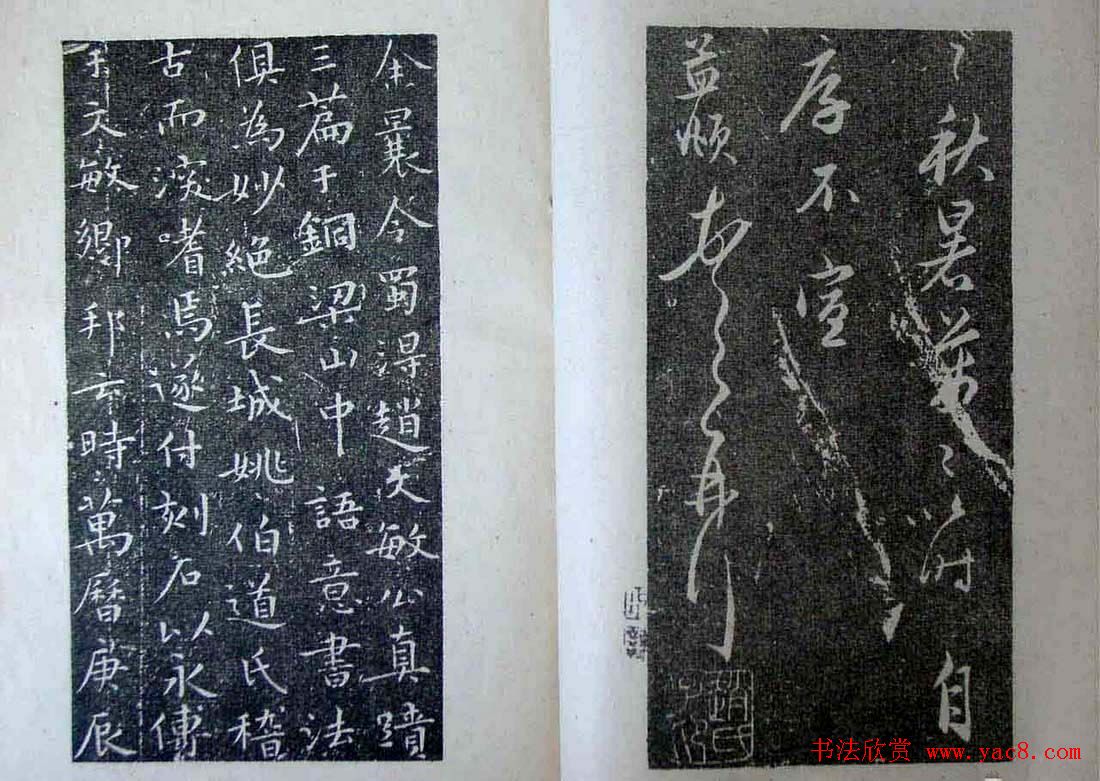 秋暑萬〻以时自
序不宣
孟頫再拜
趙氏子昂
余曩令蜀淂趙文敏公真蹟
三萹于銅梁山中語意書法
俱為妙絕長城姚伯道氏稽
古而深嗜焉遂付刻石以永傳
于文敏鄉邦云時萬曆庚辰
书法欣赏 www.yac8.com